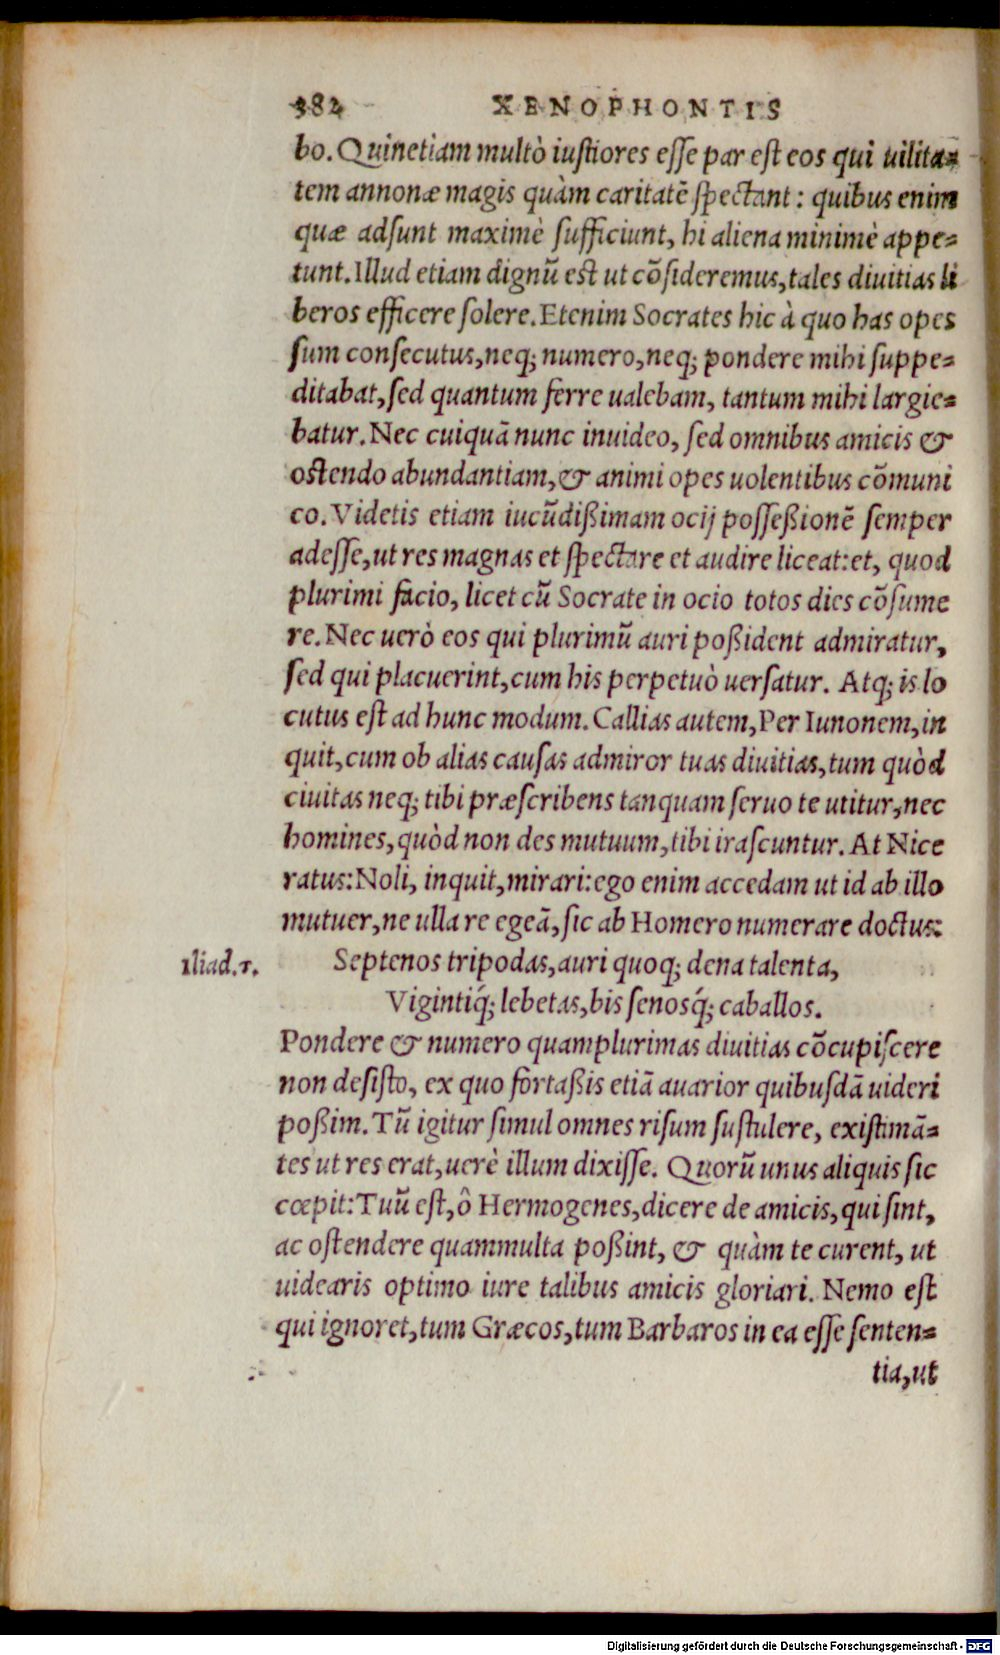 382 XENOPHONTIS
bo. Quinetiam multò iustiores esse par est eos qui uilita=
tem annonæ magis quàm caritatē spectant: quibus enim
quæ adsunt maximè sufficiunt, hi aliena minimè appe=
tunt. Illud etiam dignū est ut cōsideremus, tales diuitias li
beros efficere solere. Etenim Socrates hic à quo has opes
sum consecutus, neq; numero, neq; pondere mihi suppe=
ditabat, sed quantum ferre ualebam, tantum mihi largie=
batur. Nec cuiquā nunc inuideo, sed omnibus amicis &
ostendo abundantiam, & animi opes uolentibus cōmuni
co. Videtis etiam iucūdißimam ocij posseßionē semper
adesse, ut res magnas et spectare et audire liceat: et, quod
plurimi facio, licet cū Socrate in ocio totos dies cōsume
re. Nec uerò eos qui plurimū auri poßident admiratur,
sed qui placuerint, cum his perpetuò uersatur. Atq; is lo
cutus est ad hunc modum. Callias autem, Per Iunonem, in
quit, cum ob alias causas admiror tuas diuitias, tum quòd
ciuitas neq; tibi præscribens tanquam seruo te utitur, nec
homines, quòd non des mutuum, tibi irascuntur. At Nice
ratus: Noli, inquit, mirari: ego enim accedam ut id ab illo
mutuer, ne ulla re egeā, sic ab Homero numerare doctus:
Iliad. τ. Septenos tripodas, auri quoq; dena talenta,
Vigintiq́; lebetas, bis senosq́; caballos.
Pondere & numero quamplurimas diuitias cōcupiscere
non desisto, ex quo fortaßis etiā auarior quibusdā uideri
poßim. Tū igitur simul omnes risum sustulere, existimā=
tes ut res erat, uerè illum dixisse. Quorū unus aliquis sic
cœpit: Tuū est, ô Hermogenes, dicere de amicis, qui sint,
ac ostendere quammulta poßint, & quàm te curent, ut
uidearis optimo iure talibus amicis gloriari. Nemo est
qui ignoret, tum Græcos, tum Barbaros in ea esse senten=
tia, ut
Digitalisierung gefördert durch die Deutsche Forschungsgemeinschaft - DFG